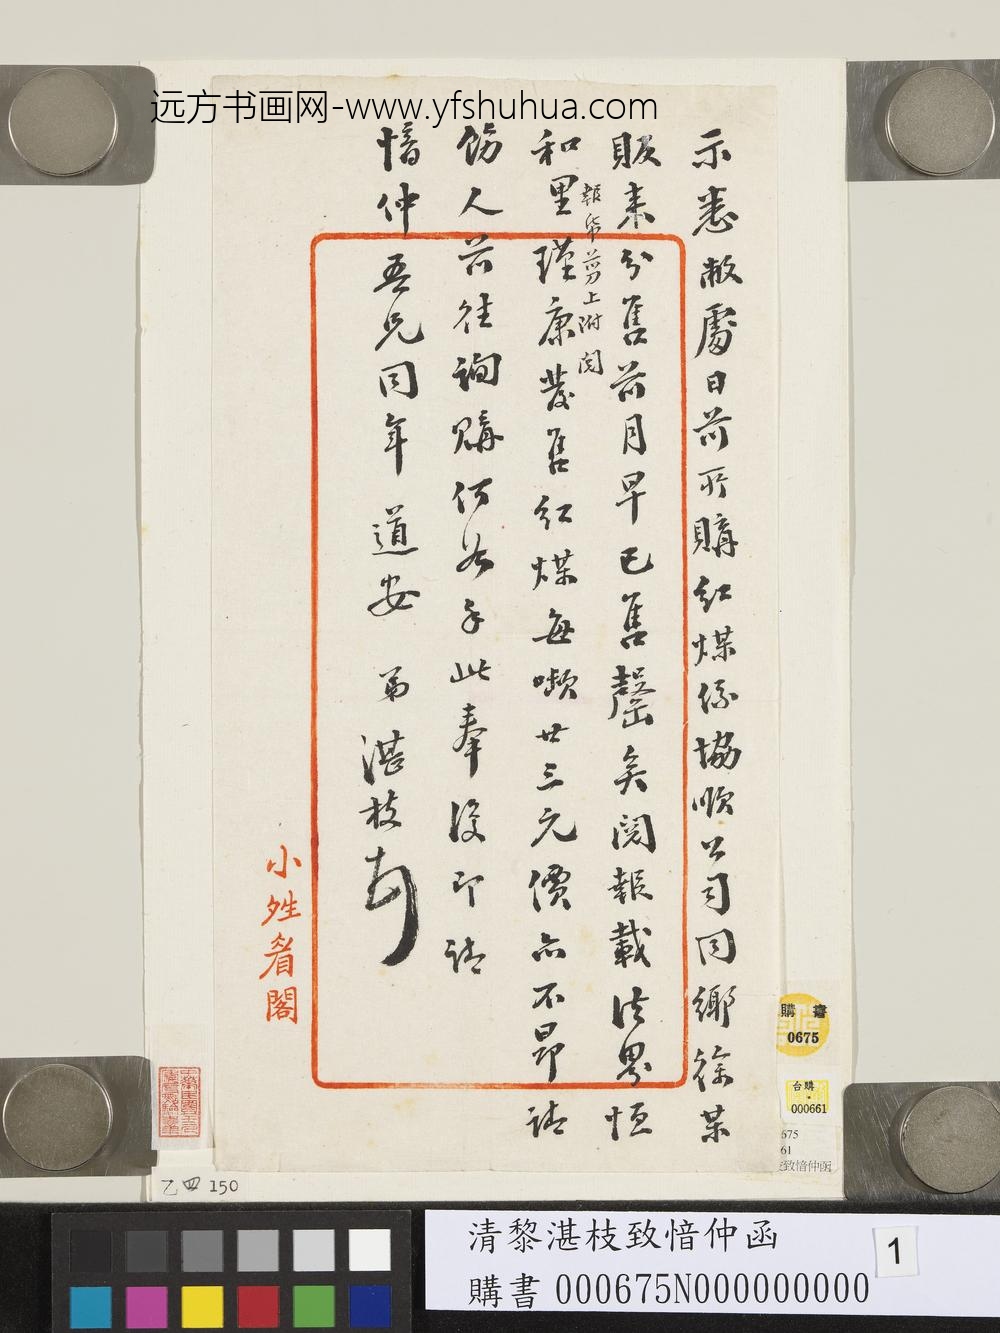 远方书画网-www.yfshuhua.com
示悉敝處日前所購紅煤係協順公司同鄉徐某
販來分售前月早已售罄矣閱報載法界恒
報紙剪上附閱
和里瑾康發售紅煤每噸廿三元價亦不昂請
飭人前往詢購何如手此奉復即請
愔仲吾兄同年道安 弟湛枝頓
小姓眷閣
購書
0675
台購
000661
675
61
枝致愔仲函
乙四 150
清黎湛枝致愔仲函
購書000675N000000000
1